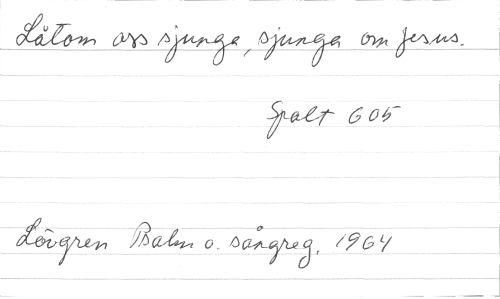 Låtom oss sjunga, sjunga om Jesus.
Spalt 605
Lövgren Psalm o. sångreg. 1964